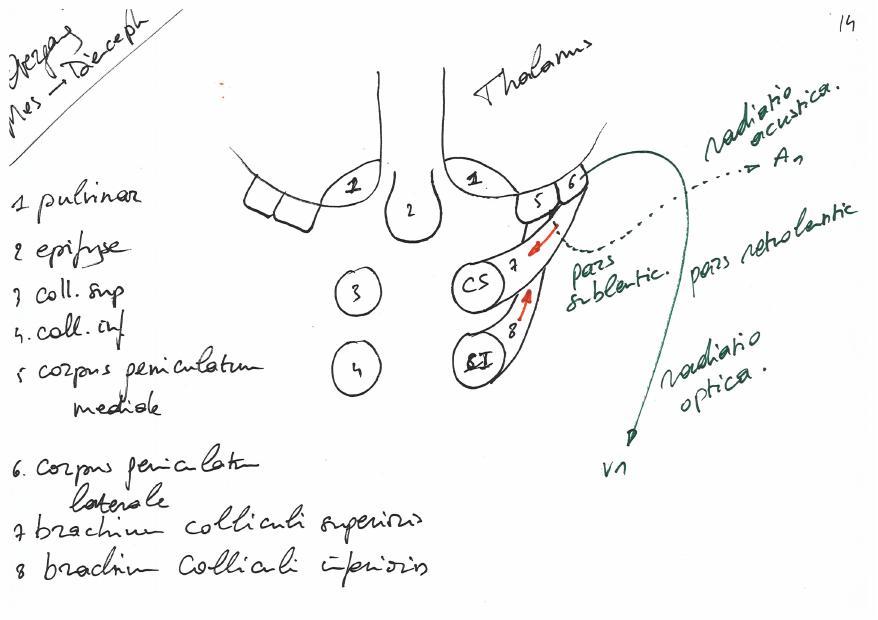 14
Overgang
Mes → Dienceph
Thalamus
radiatio
acustica.
A1
1
1
2
5
6
7
CS
3
8
CI
4
pars
sublentic.
pars retrolentic
radiatio
optica.
V1
1 pulvinar
2 epifyse
3 coll. sup
4. coll. inf
5 corpus geniculatum
mediale
6. corpus geniculatum
laterale
7 brachium colliculi superioris
8 brachium colliculi inferioris